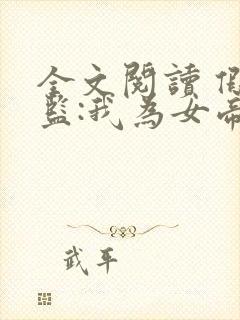 全文閱讀 假
監:我為女帝
武平